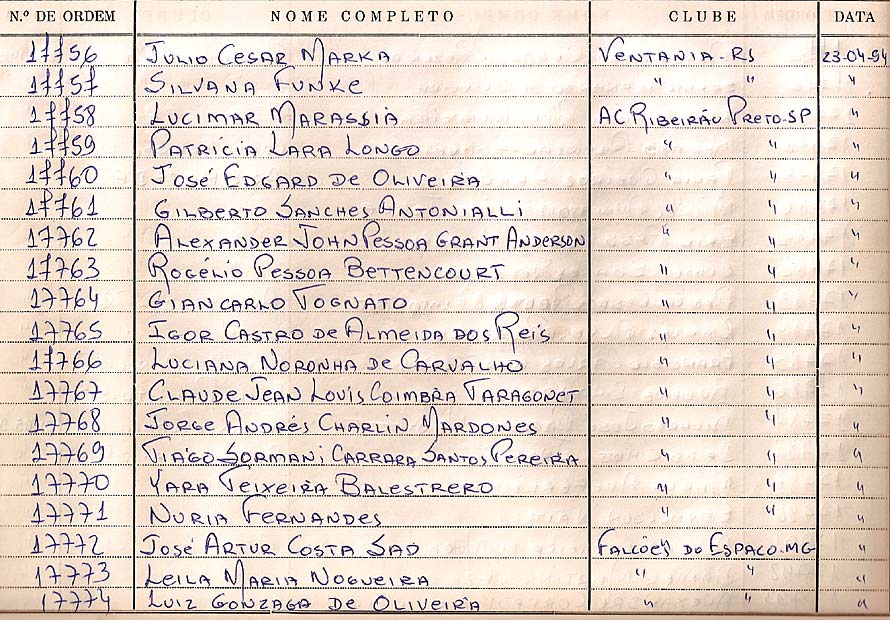 N.º DE ORDEM NOME COMPLETO CLUBE DATA
17756 JULIO CESAR MARKA VENTANIA-RS 23-04-94
17757 SILVANA FUNKE " " "
17758 LUCIMAR MARASSIA AC RIBEIRÃO PRETO-SP "
17759 PATRÍCIA LARA LONGO " " "
17760 JOSÉ EDGARD DE OLIVEIRA " " "
17761 GILBERTO SANCHES ANTONIALLI " " "
17762 ALEXANDER JOHN PESSOA GRANT ANDERSON " " "
17763 ROGÉLIO PESSOA BETTENCOURT " " "
17764 GIANCARLO TOGNATO " " "
17765 IGOR CASTRO DE ALMEIDA DOS REIS " " "
17766 LUCIANA NORONHA DE CARVALHO " " "
17767 CLAUDE JEAN LOUIS COIMBRA TARAGONET " " "
17768 JORGE ANDRÉS CHARLIN MARDONES " " "
17769 TIAGO SORMANI CARRARA SANTOS PEREIRA " " "
17770 YARA TEIXEIRA BALESTRERO " " "
17771 NURIA FERNANDES " " "
17772 JOSÉ ARTUR COSTA SAD FALCÕES DO ESPAÇO-MG "
17773 LEILA MARIA NOGUEIRA " " "
17774 LUIZ GONZAGA DE OLIVEIRA " " "